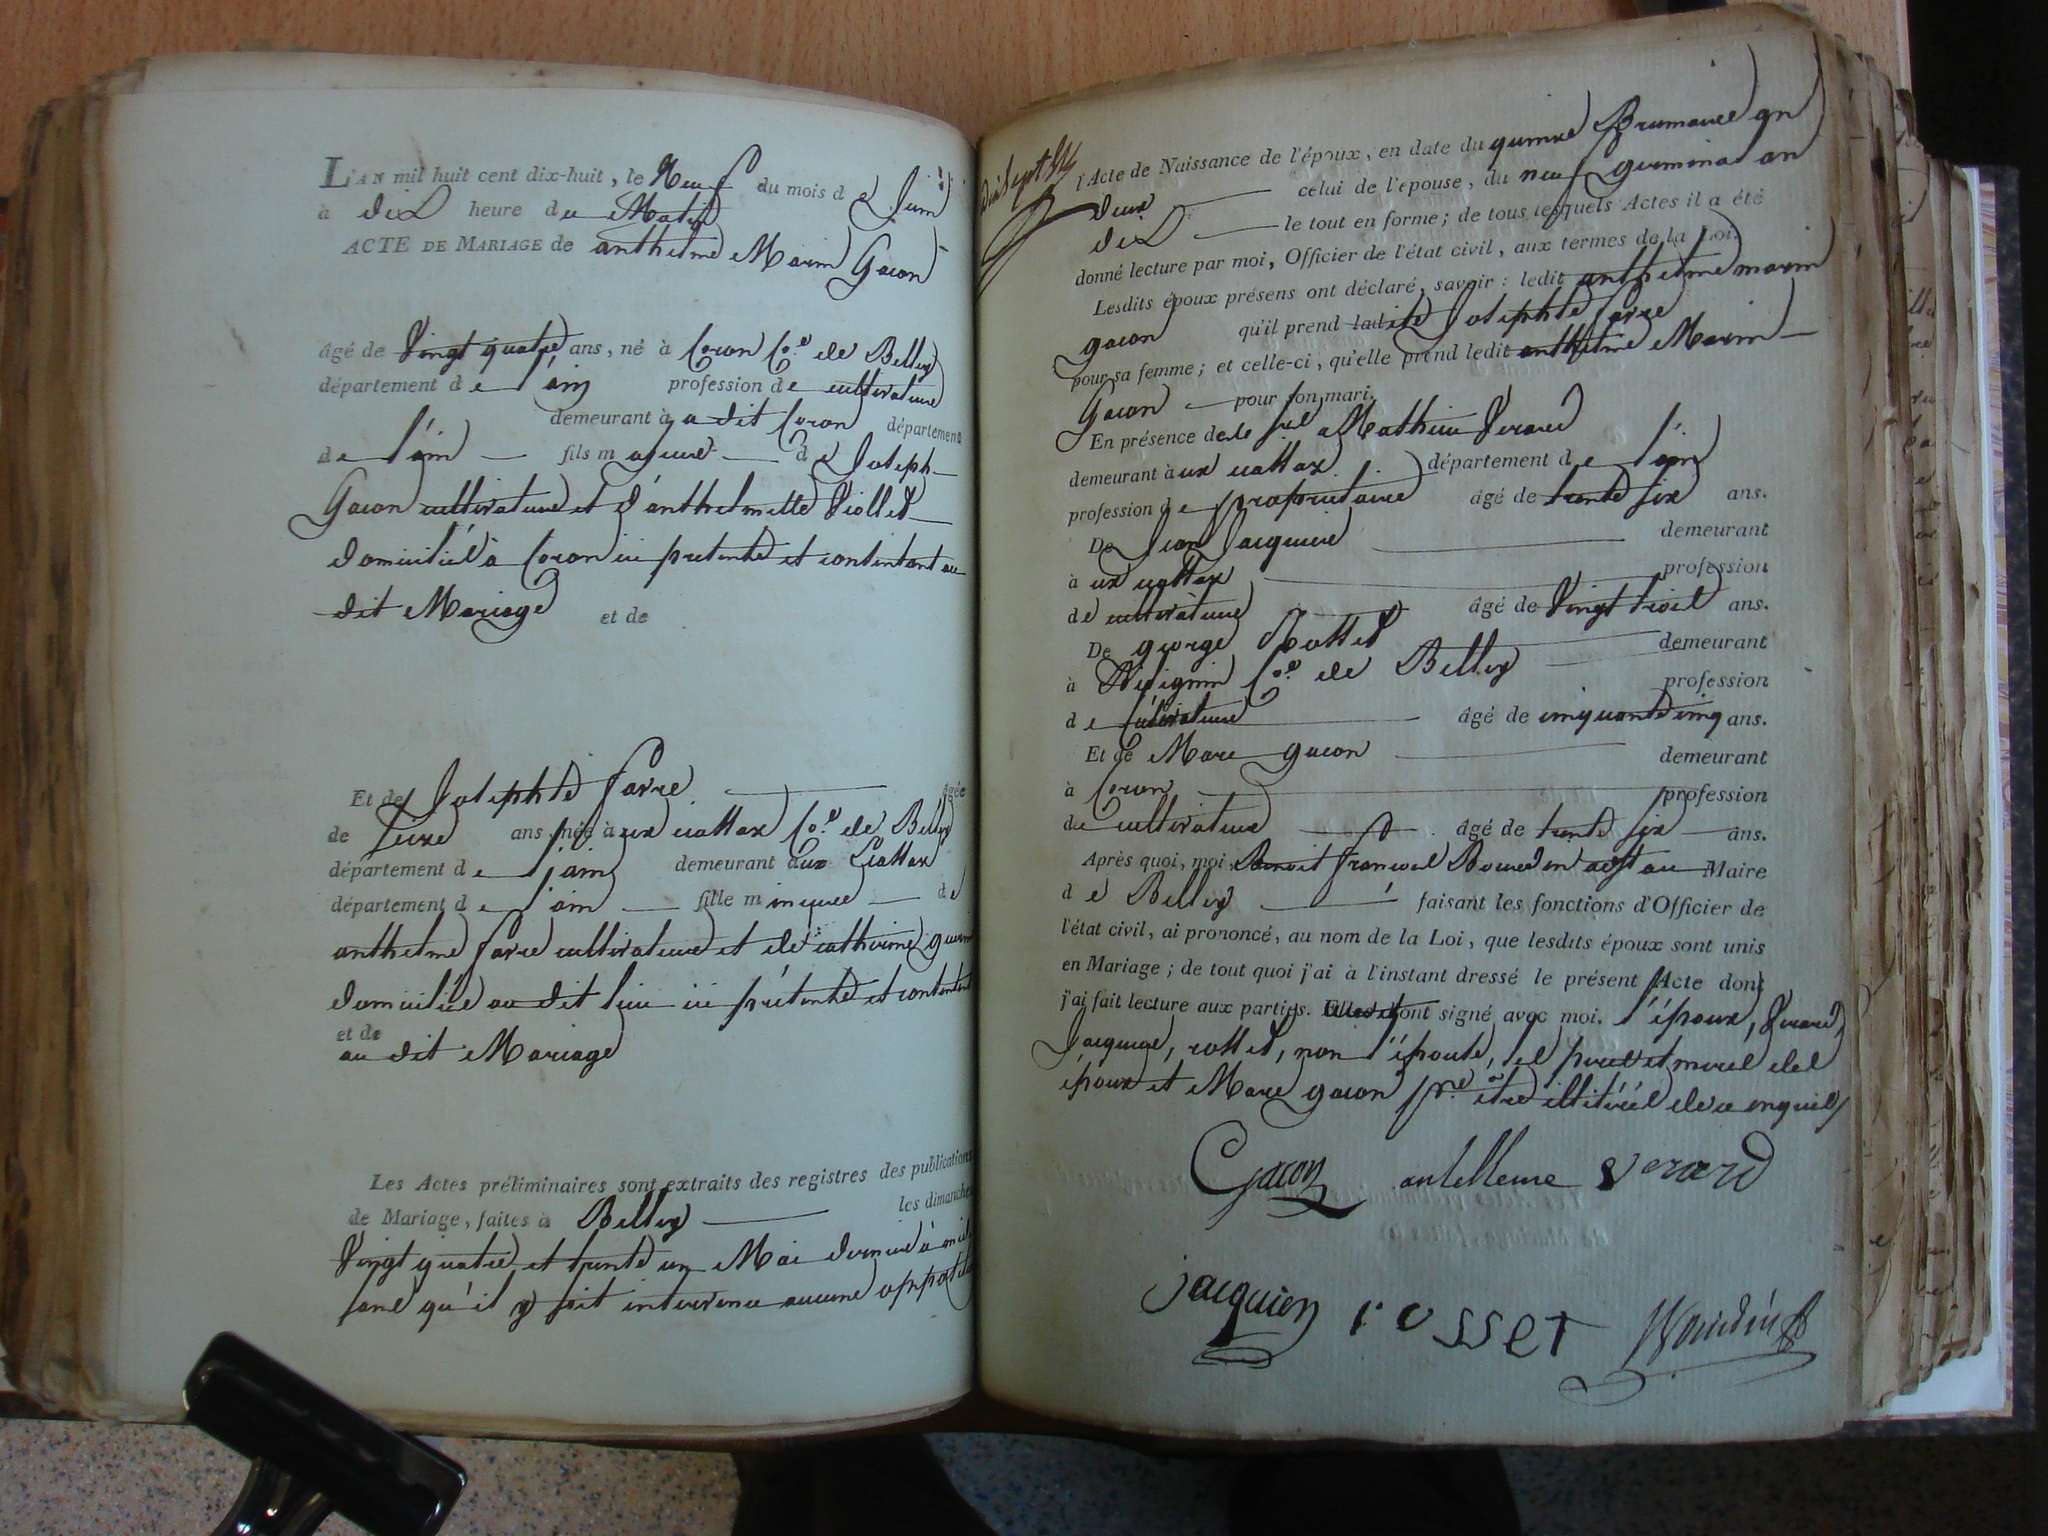 L'AN mil huit cent dix-huit, le Neuf du mois de Juin
à dix heure du Matin
ACTE DE MARIAGE de anthelme Marin Gacon
âgé de Vingt quatre ans, né à Coron Cne de Belley
département de l'ain profession de cultivateur
demeurant à u dit Coron département
de l'ain fils majeur de Joseph
Gacon cultivateur et d'anthelmette Viollet
domiciliés à Coron ici présents et consentant au
dit Mariage et de
Et de Josephte favre âgée
de seize ans, née à ux cattax Cne de Belley
département de l'ain demeurant aux Cattax
département de l'ain fille mineure de
anthelme favre cultivateur et de catherine guerin
domiciliés au dit lieu ici présents et consentent
et de
au dit Mariage
Les Actes préliminaires sont extraits des registres des publications
de Mariage, faites à Belley les dimanches
Vingt quatre et trente un Mai dernier à midi
sans qu'il y soit intervenu aucune opposition
dix sept
l'Acte de Naissance de l'époux, en date du quinze Brumaire an
deux celui de l'epouse, du neuf germinal an
dix le tout en forme; de tous lesquels Actes il a été
donné lecture par moi, Officier de l'état civil, aux termes de la Loi.
Lesdits époux présens ont déclaré, savoir: ledit anthelme marin
gacon qu'il prend ladite Josephte favre
pour sa femme; et celle-ci, qu'elle prend ledit anthelme Marin
Gacon pour son mari.
En présence de Mathieu Verard
demeurant à ux cattax département de l'ain
profession de propriétaire âgé de trente six ans.
De Jean Jacquier demeurant
à ux cattax profession
de cultivateur âgé de Vingt trois ans.
De george Rosset demeurant
à Cne de Belley profession
de Cultivateur âgé de cinquante cinq ans.
Et de Marc gacon demeurant
à Coron profession
du cultivateur âgé de trente six ans.
Après quoi, moi Benoit françois Bourdin adjt au Maire
de Belley faisant les fonctions d'Officier de
l'état civil, ai prononcé, au nom de la Loi, que lesdits époux sont unis
en Mariage; de tout quoi j'ai à l'instant dressé le présent Acte dont
j'ai fait lecture aux parties. ont signé avec moi. l'époux, Verard,
Jacquier, rosset, non l'épouse, les peres et meres des
époux et Marc gacon pr être illitérés de ce enquis
Gacon antelleme verard
jacquier rosset Bourdin